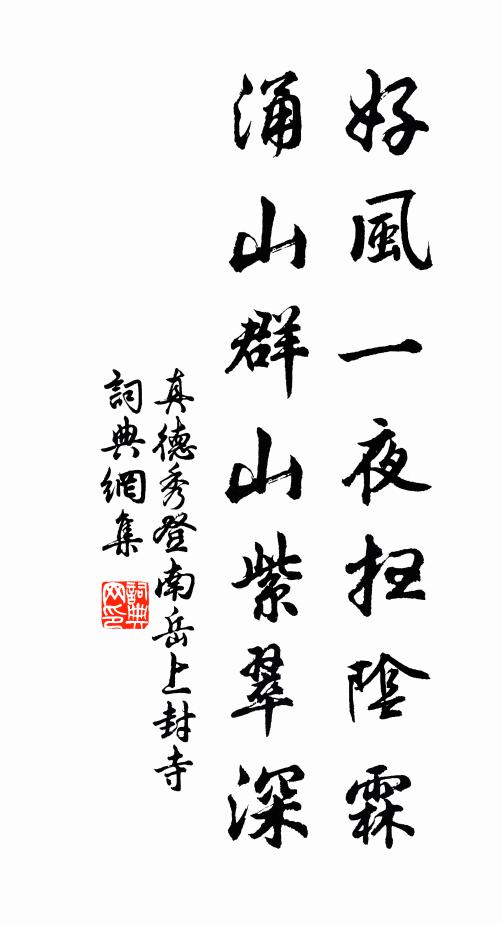 好風一夜扫陰霖
涌山群山紫翠深
真德秀登南岳上封寺
詞典網集
詞典
网印